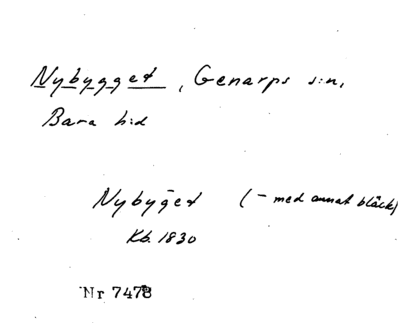 Nybygget, Genarps s:n,
Bara h:d
Nybyg̅et (- med annat bläck)
Kb. 1830
Nr 7478